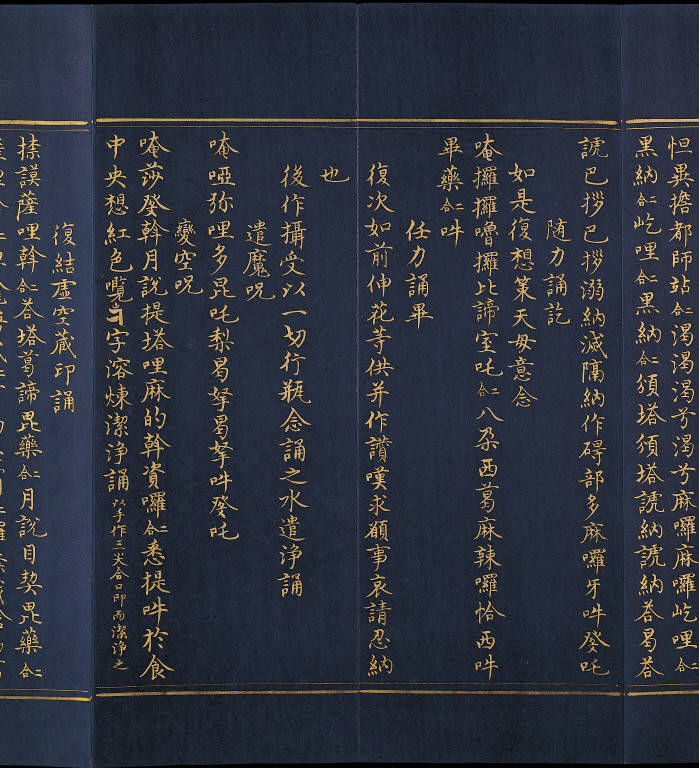 怛異擔都師站合二渴渴渴兮渴兮麻囉麻囉屹哩合二
黑納合二屹哩合二黑納合二須塔須塔謕納謕納荅曷荅
謕巴拶巴拶溺納減隔納作碍部多麻囉牙吽癹吒
随力誦訖
如是復想業天母意念
唵攞攞嚕攞比諦室吒合二八朶西葛麻辣囉恰西吽
畢藥合二吽
任力誦畢
復次如前伸花等供并作讚嘆求願事哀請忍納
也
後作攝受以一切行瓶念誦之水遣浄誦
遣魔咒
唵啞弥哩多昆吒梨曷拏曷拏吽癹吒
變空咒
唵莎癹斡月說提塔哩麻的斡資囉合二悉提吽於食
中央想紅色字溶煉潔浄誦以手作三尖合口印而潔浄之
復結虚空藏印誦
捺謨薩哩斡合二荅塔葛諦毘藥合二月說目契毘藥合二